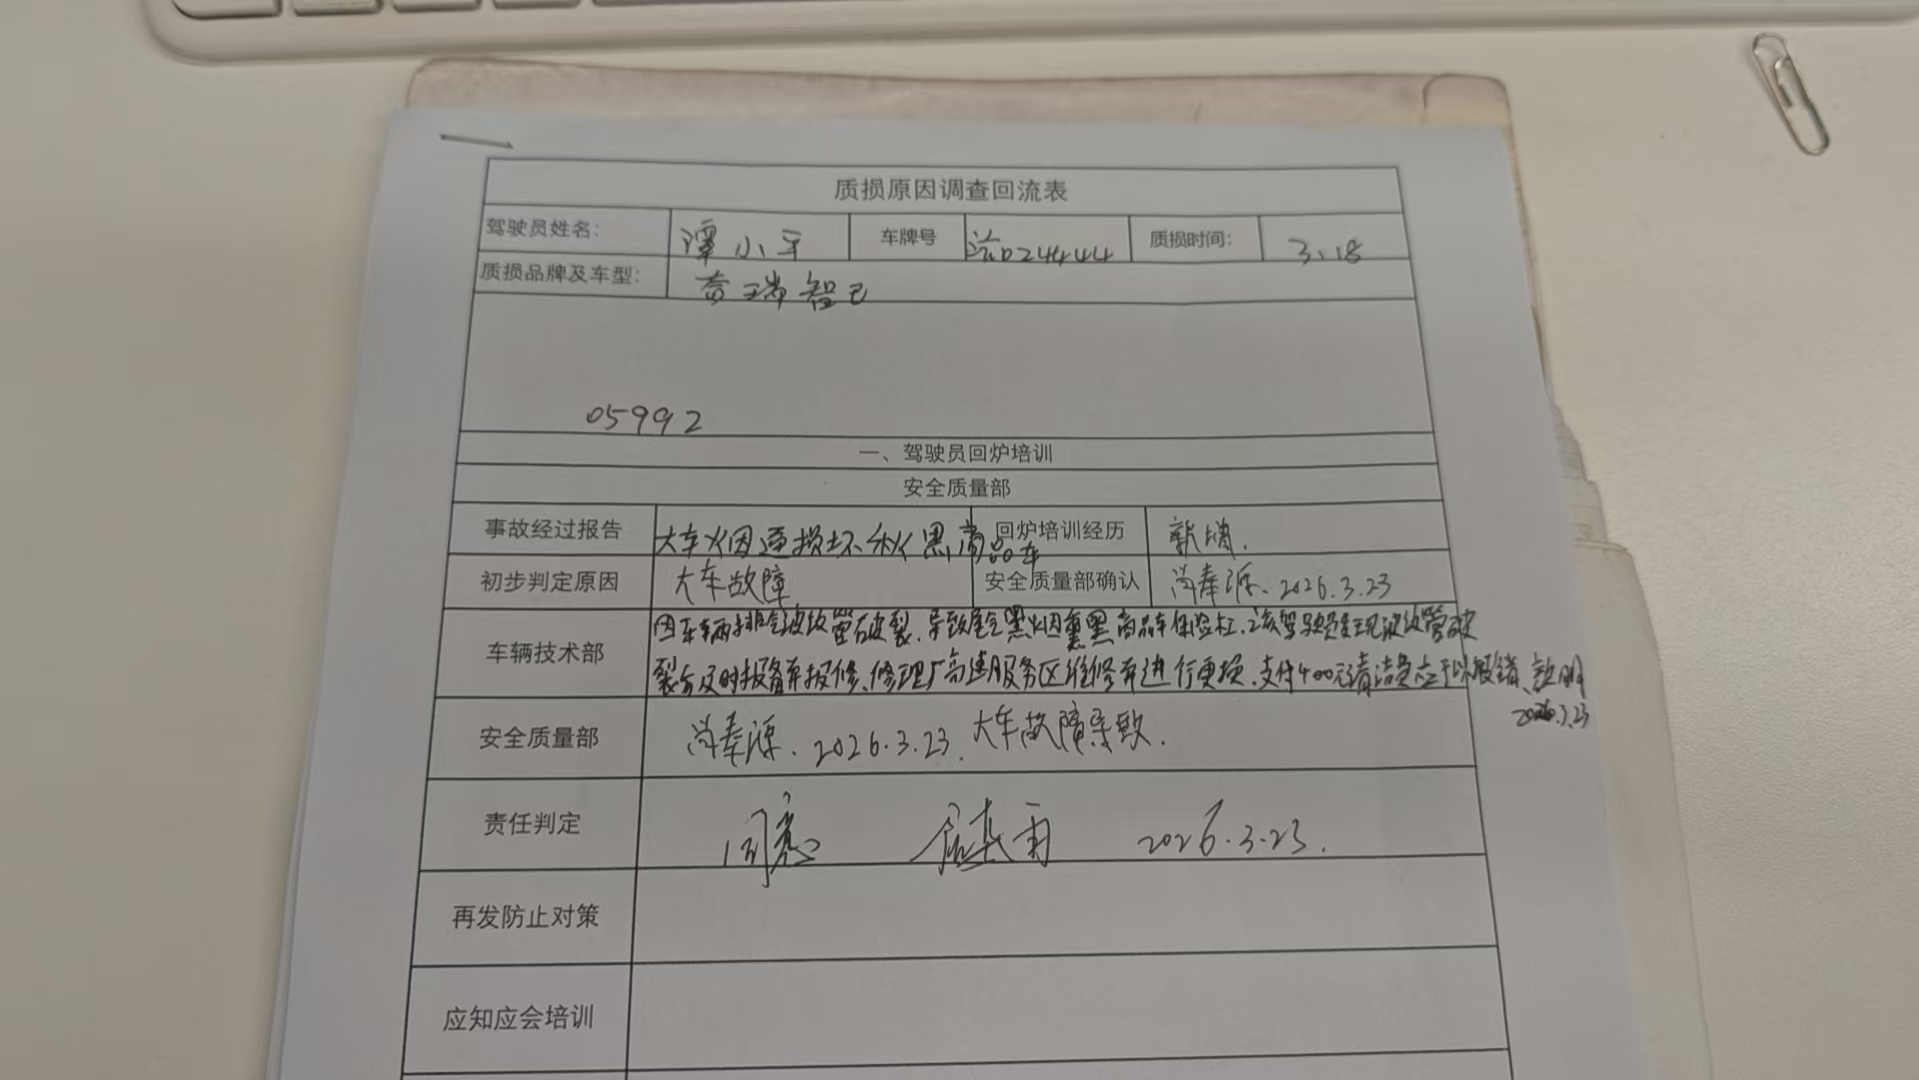 质损原因调查回流表
驾驶员姓名: 谭小平 车牌号 沪D24444 质损时间: 3.18
质损品牌及车型: 奇瑞智己
05992
一、驾驶员回炉培训
安全质量部
事故经过报告 大车烟道损坏 熏黑商品车 回炉培训经历
初步判定原因 大车故障 安全质量部确认 2026.3.23
车辆技术部 因车辆排气波纹管破裂,导致尾气黑烟熏黑商品车保险杠,该驾驶员发现波纹管破
裂后及时报备车报修、修理厂高速服务区维修车进行更换,支付400元清洁费应予以报销、
2026.3.23
安全质量部 2026.3.23. 大车故障导致.
责任判定 同意 2026.3.23.
再发防止对策
应知应会培训